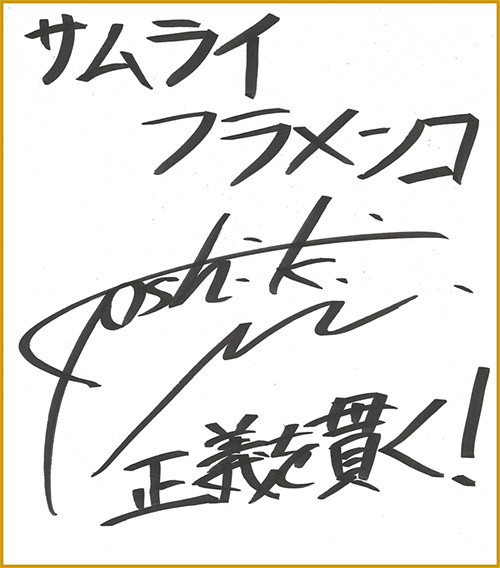 サムライ
フラメンコ
Toshiki
正義を貫く!